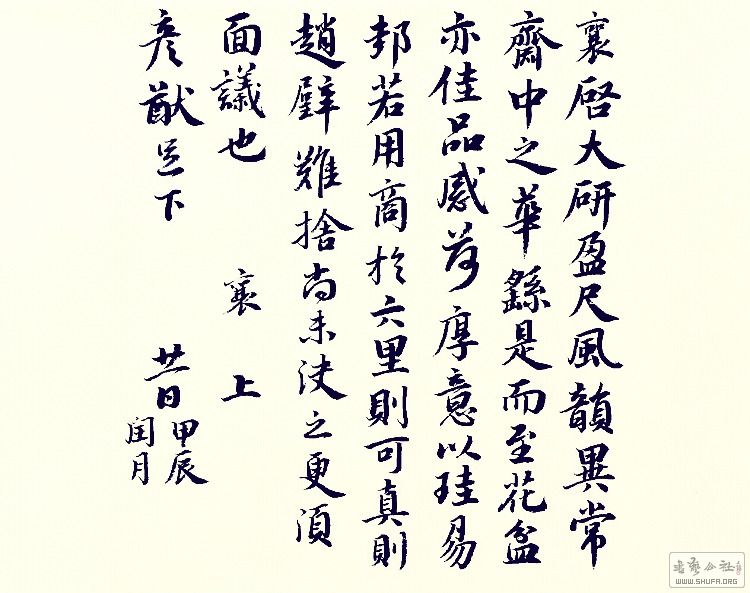 襄啓大研盈尺風韻異常
齋中之華繇是而至花盆
亦佳品感荷厚意以珪易
邦若用商於六里則可真則
趙璧難捨尚未決之更須
面議也 襄上
彦猷足下 廿一日 甲辰
閏月
WWW.SHUFA.ORG